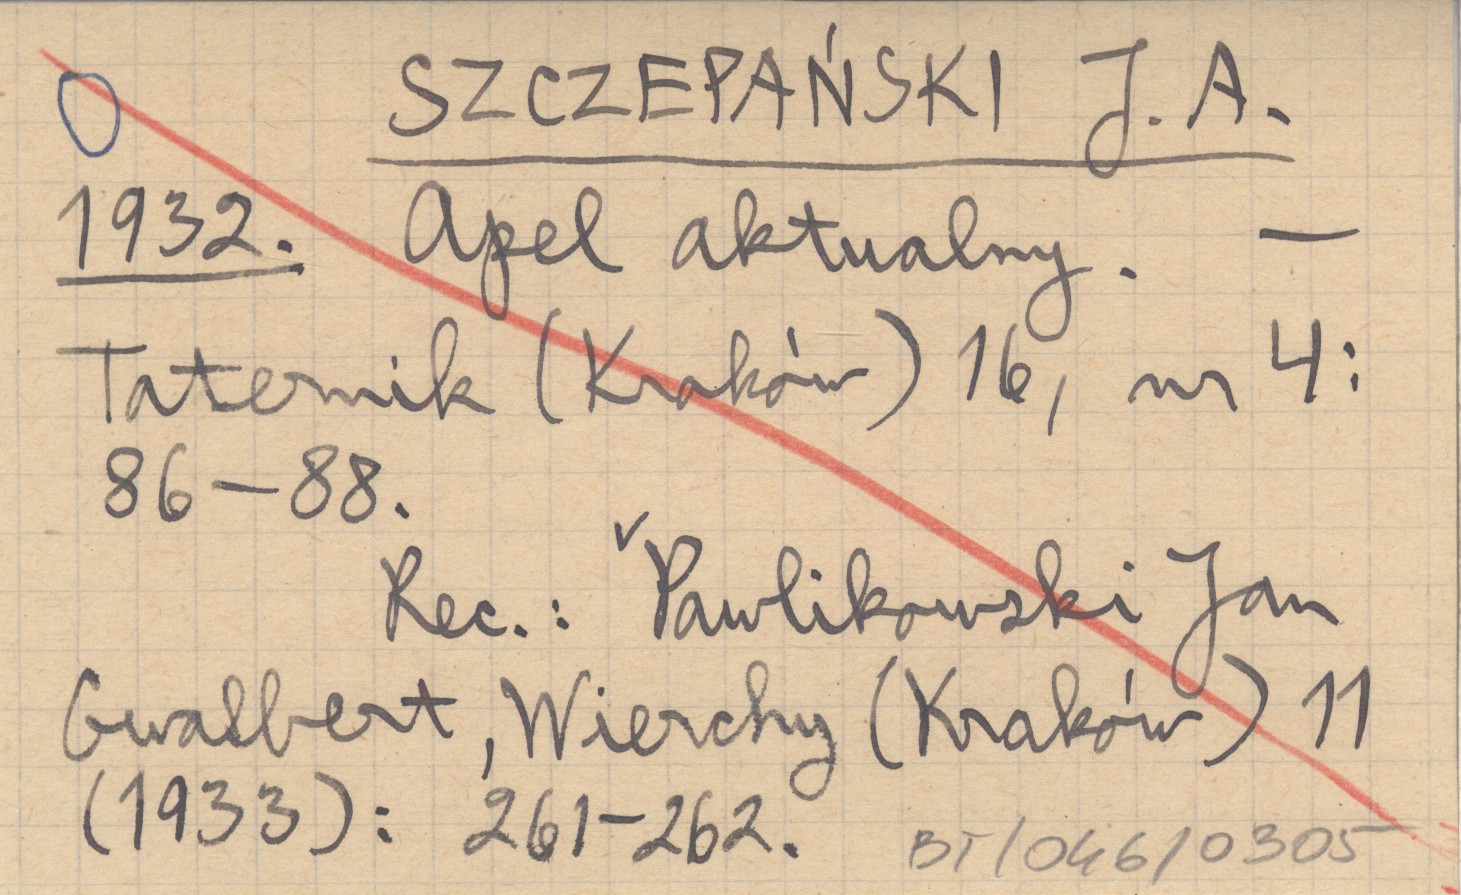 SZCZEPAŃSKI J. A.
1932. Apel aktualny. —
Taternik (Kraków) 16, nr 4:
86–88.
Rec.: ᵛPawlikowski Jan
Gwalbert, Wierchy (Kraków) 11
(1933): 261–262.
BT/046/0305